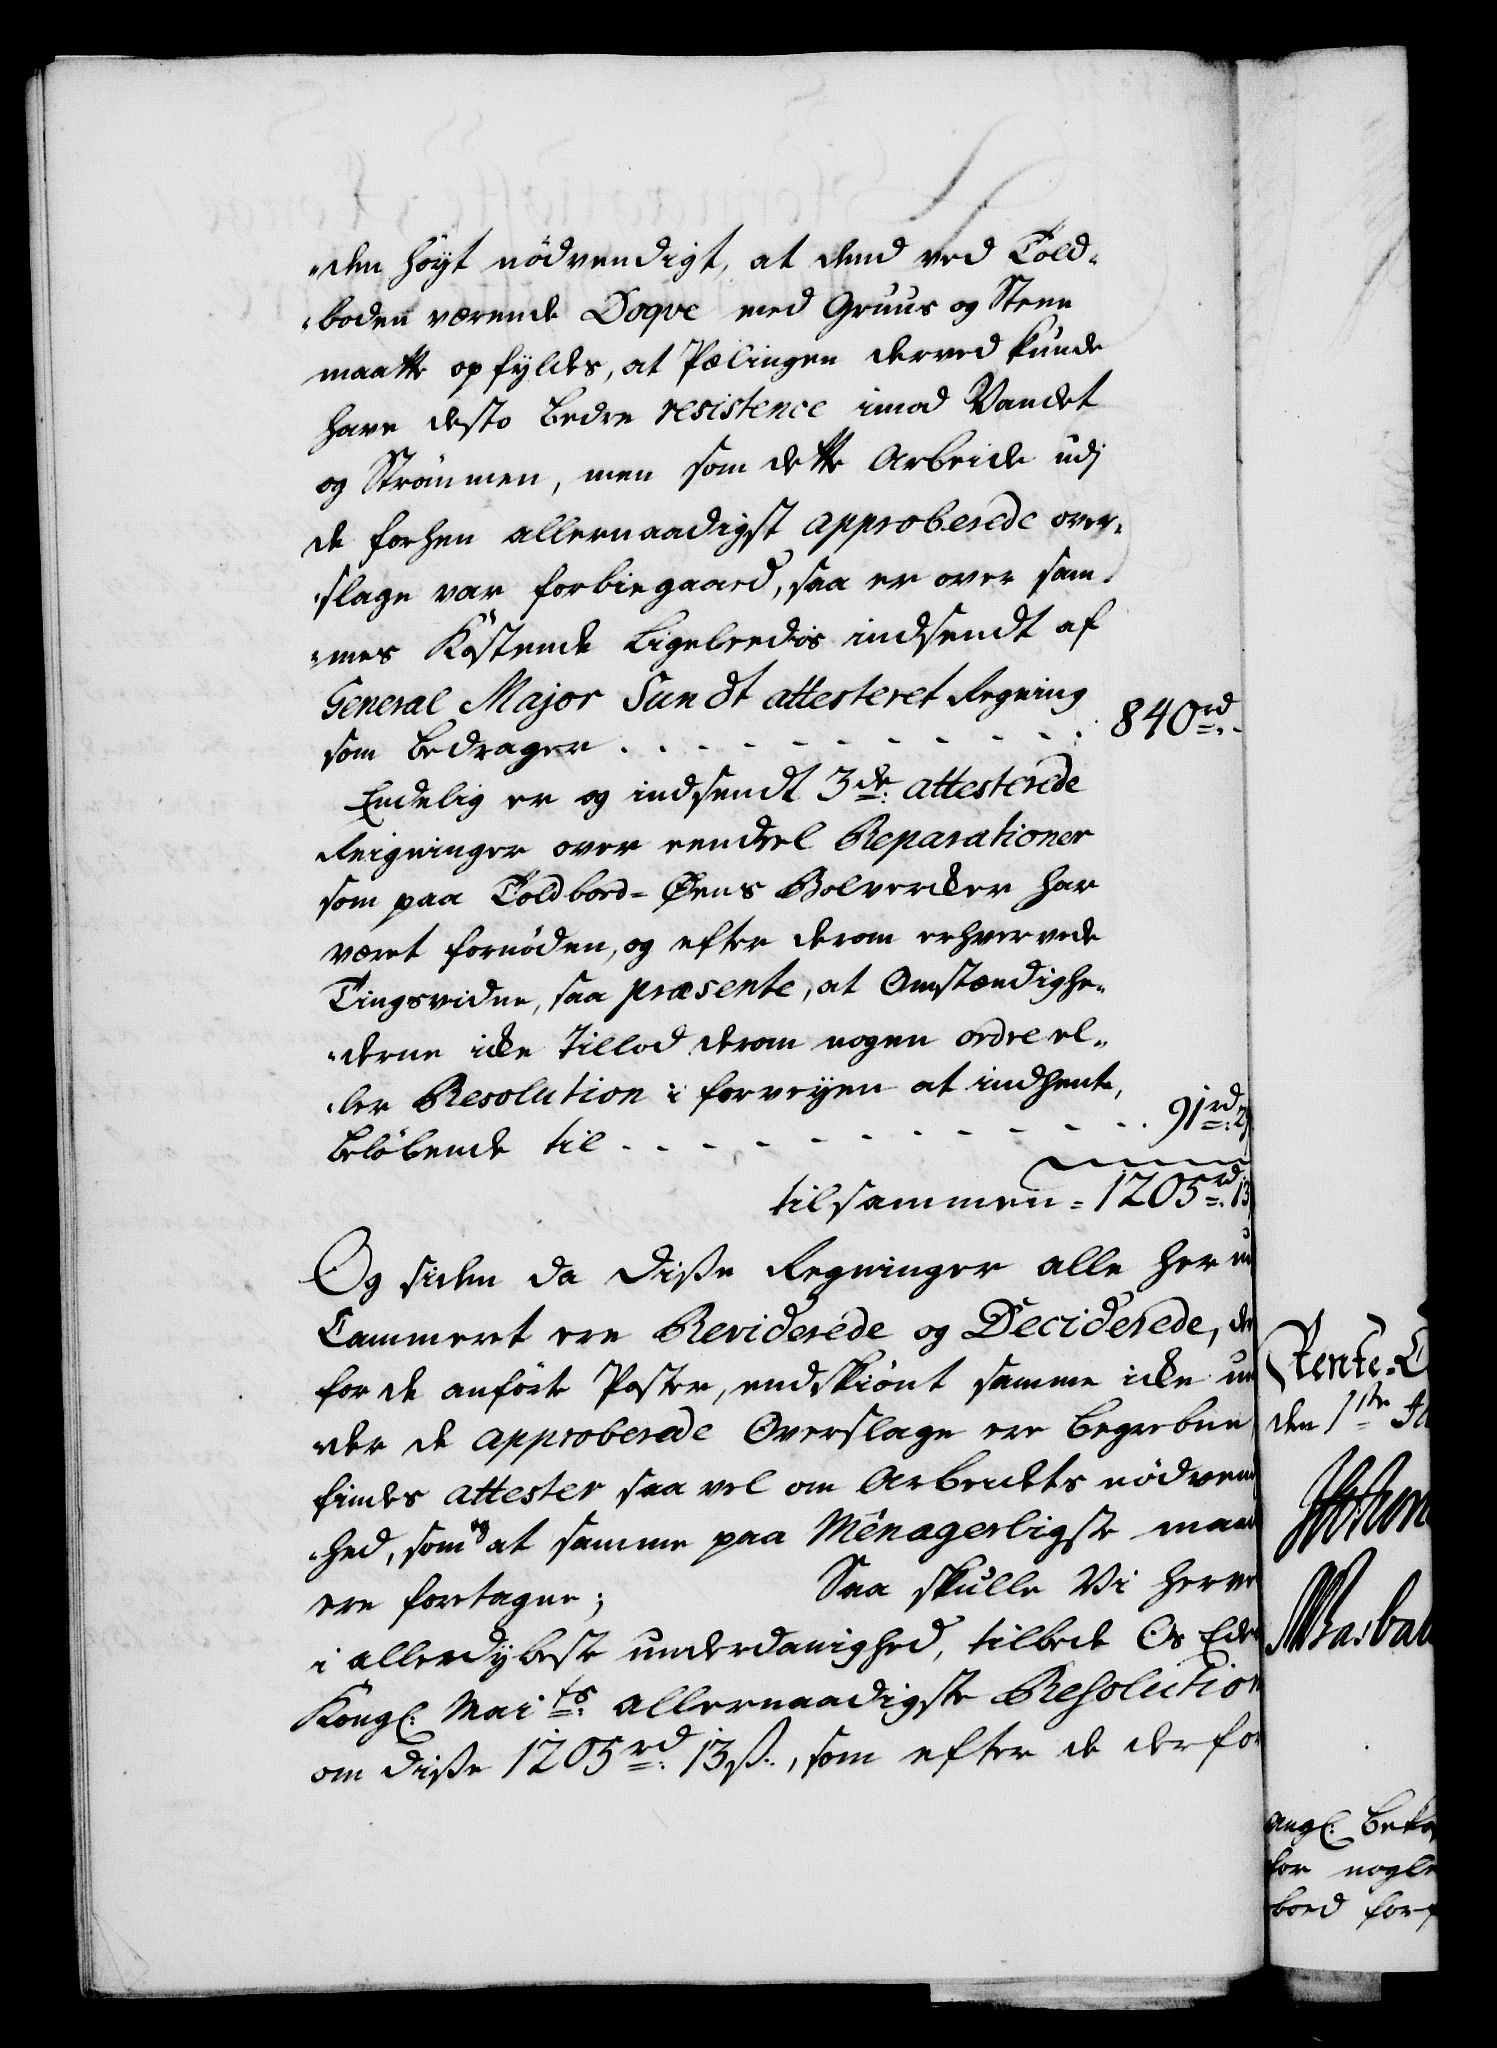 „den höyt nödvendigt, at dend ved Told-
„boden værende Doqve med Gruus og Steen
maatte opfyldes, at Pælingen derved kunde
have desto bedre resistence imod Vandet
og Strömmen, men som dette Arbeide udj
de forhen allernaadigst approberede over-
„slage var forbiegaaed, saa er over sam-
„mes Kostende ligeledis indsendt af
General Major Sundt attesteret Regning
som bedrager . . . . . . . . . . 840rd.
Endelig er og indsendt 3de: attesterede
Reigninger over eendeel Reparationer
som paa Toldbod-Öens Bolvercker har
været fornöden, og efter derom erhvervede
Tingsvidne, saa præsente, at Omstændighe-
„derne icke tillod derom nogen ordre el-
„ler Resolution i forveyen at indhente,
belöbende til . . . . . . . . . . 91rd: 2
tilsammen = 1205rd: 13
Og siden da disse Regninger alle her u
Cammeret ere Reviderede og Deciderede, de
for de anförte Poster, endskiönt samme icke un
„der de approberede Overslage ere begrebne
findes attester saa vel om Arbeidets nödven
„hed, som og at samme paa Ménagerligste maa
ere foretagne; Saa skulle Vi herve
i allerdybeste underdanighed, tilbede Os Ede
Kongl: Mai ts: allernaadigste Resolution
om disse 1205rd: 13ß., som efter de derfor
Rente-C
den 1ste
angl: bek
for nogle
bord forf